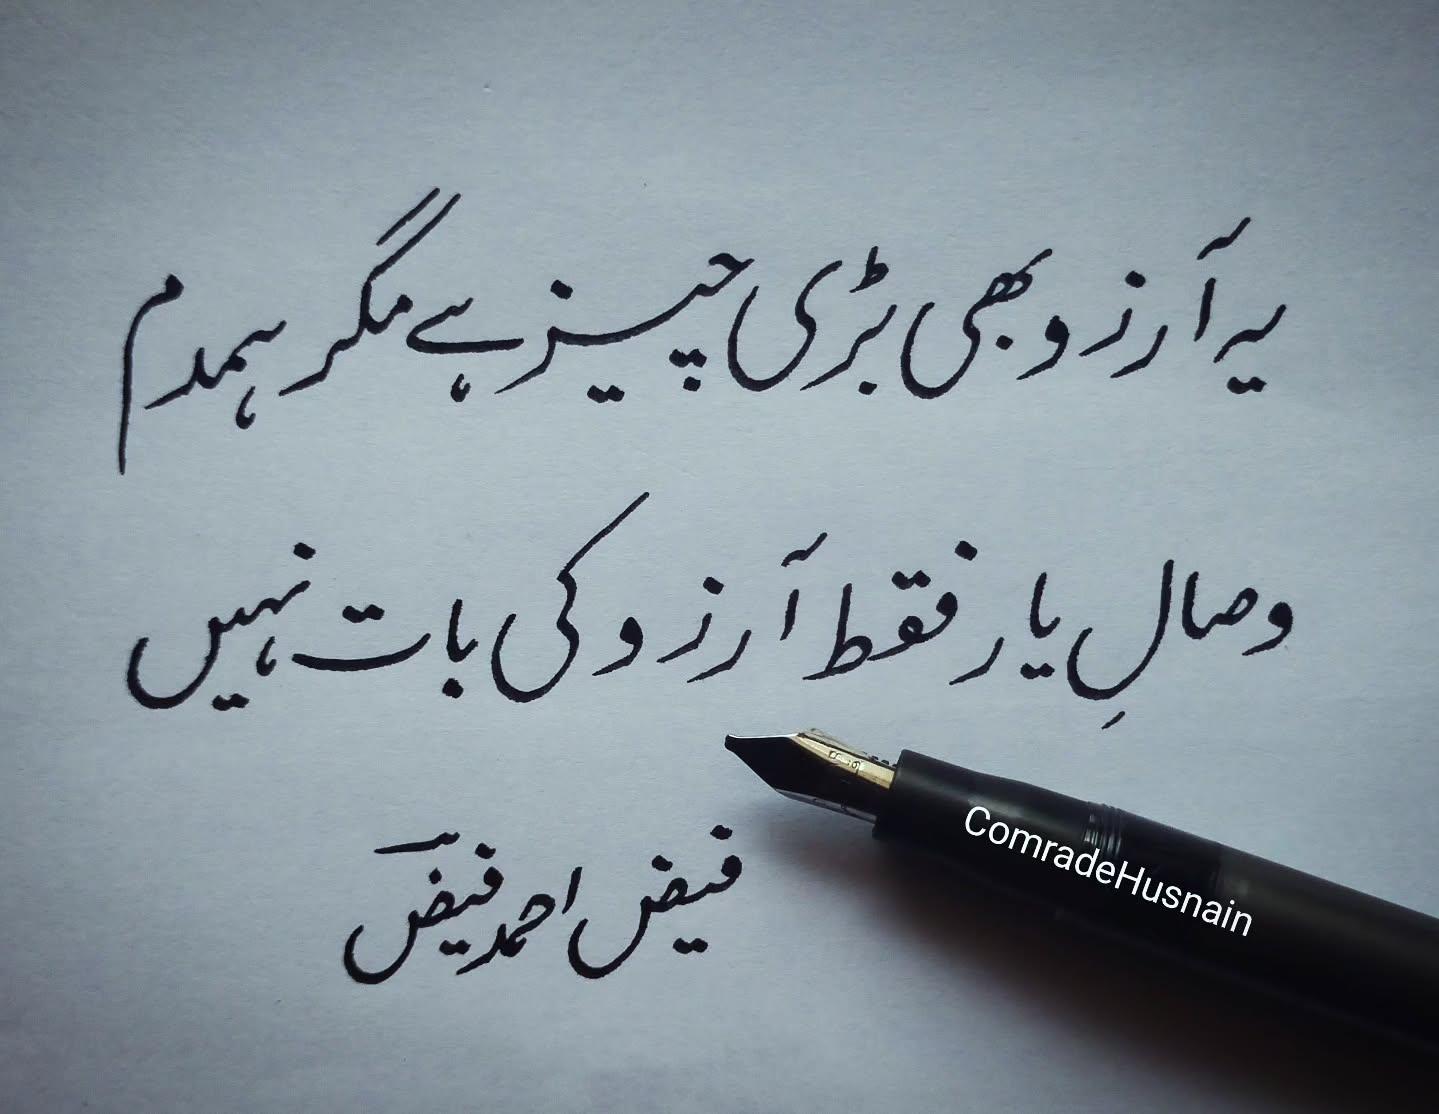 یہ آرزو بھی بڑی چیز ہے مگر ہمدم
وصالِ یار فقط آرزو کی بات نہیں
فیض احمد فیضؔ
ComradeHusnain